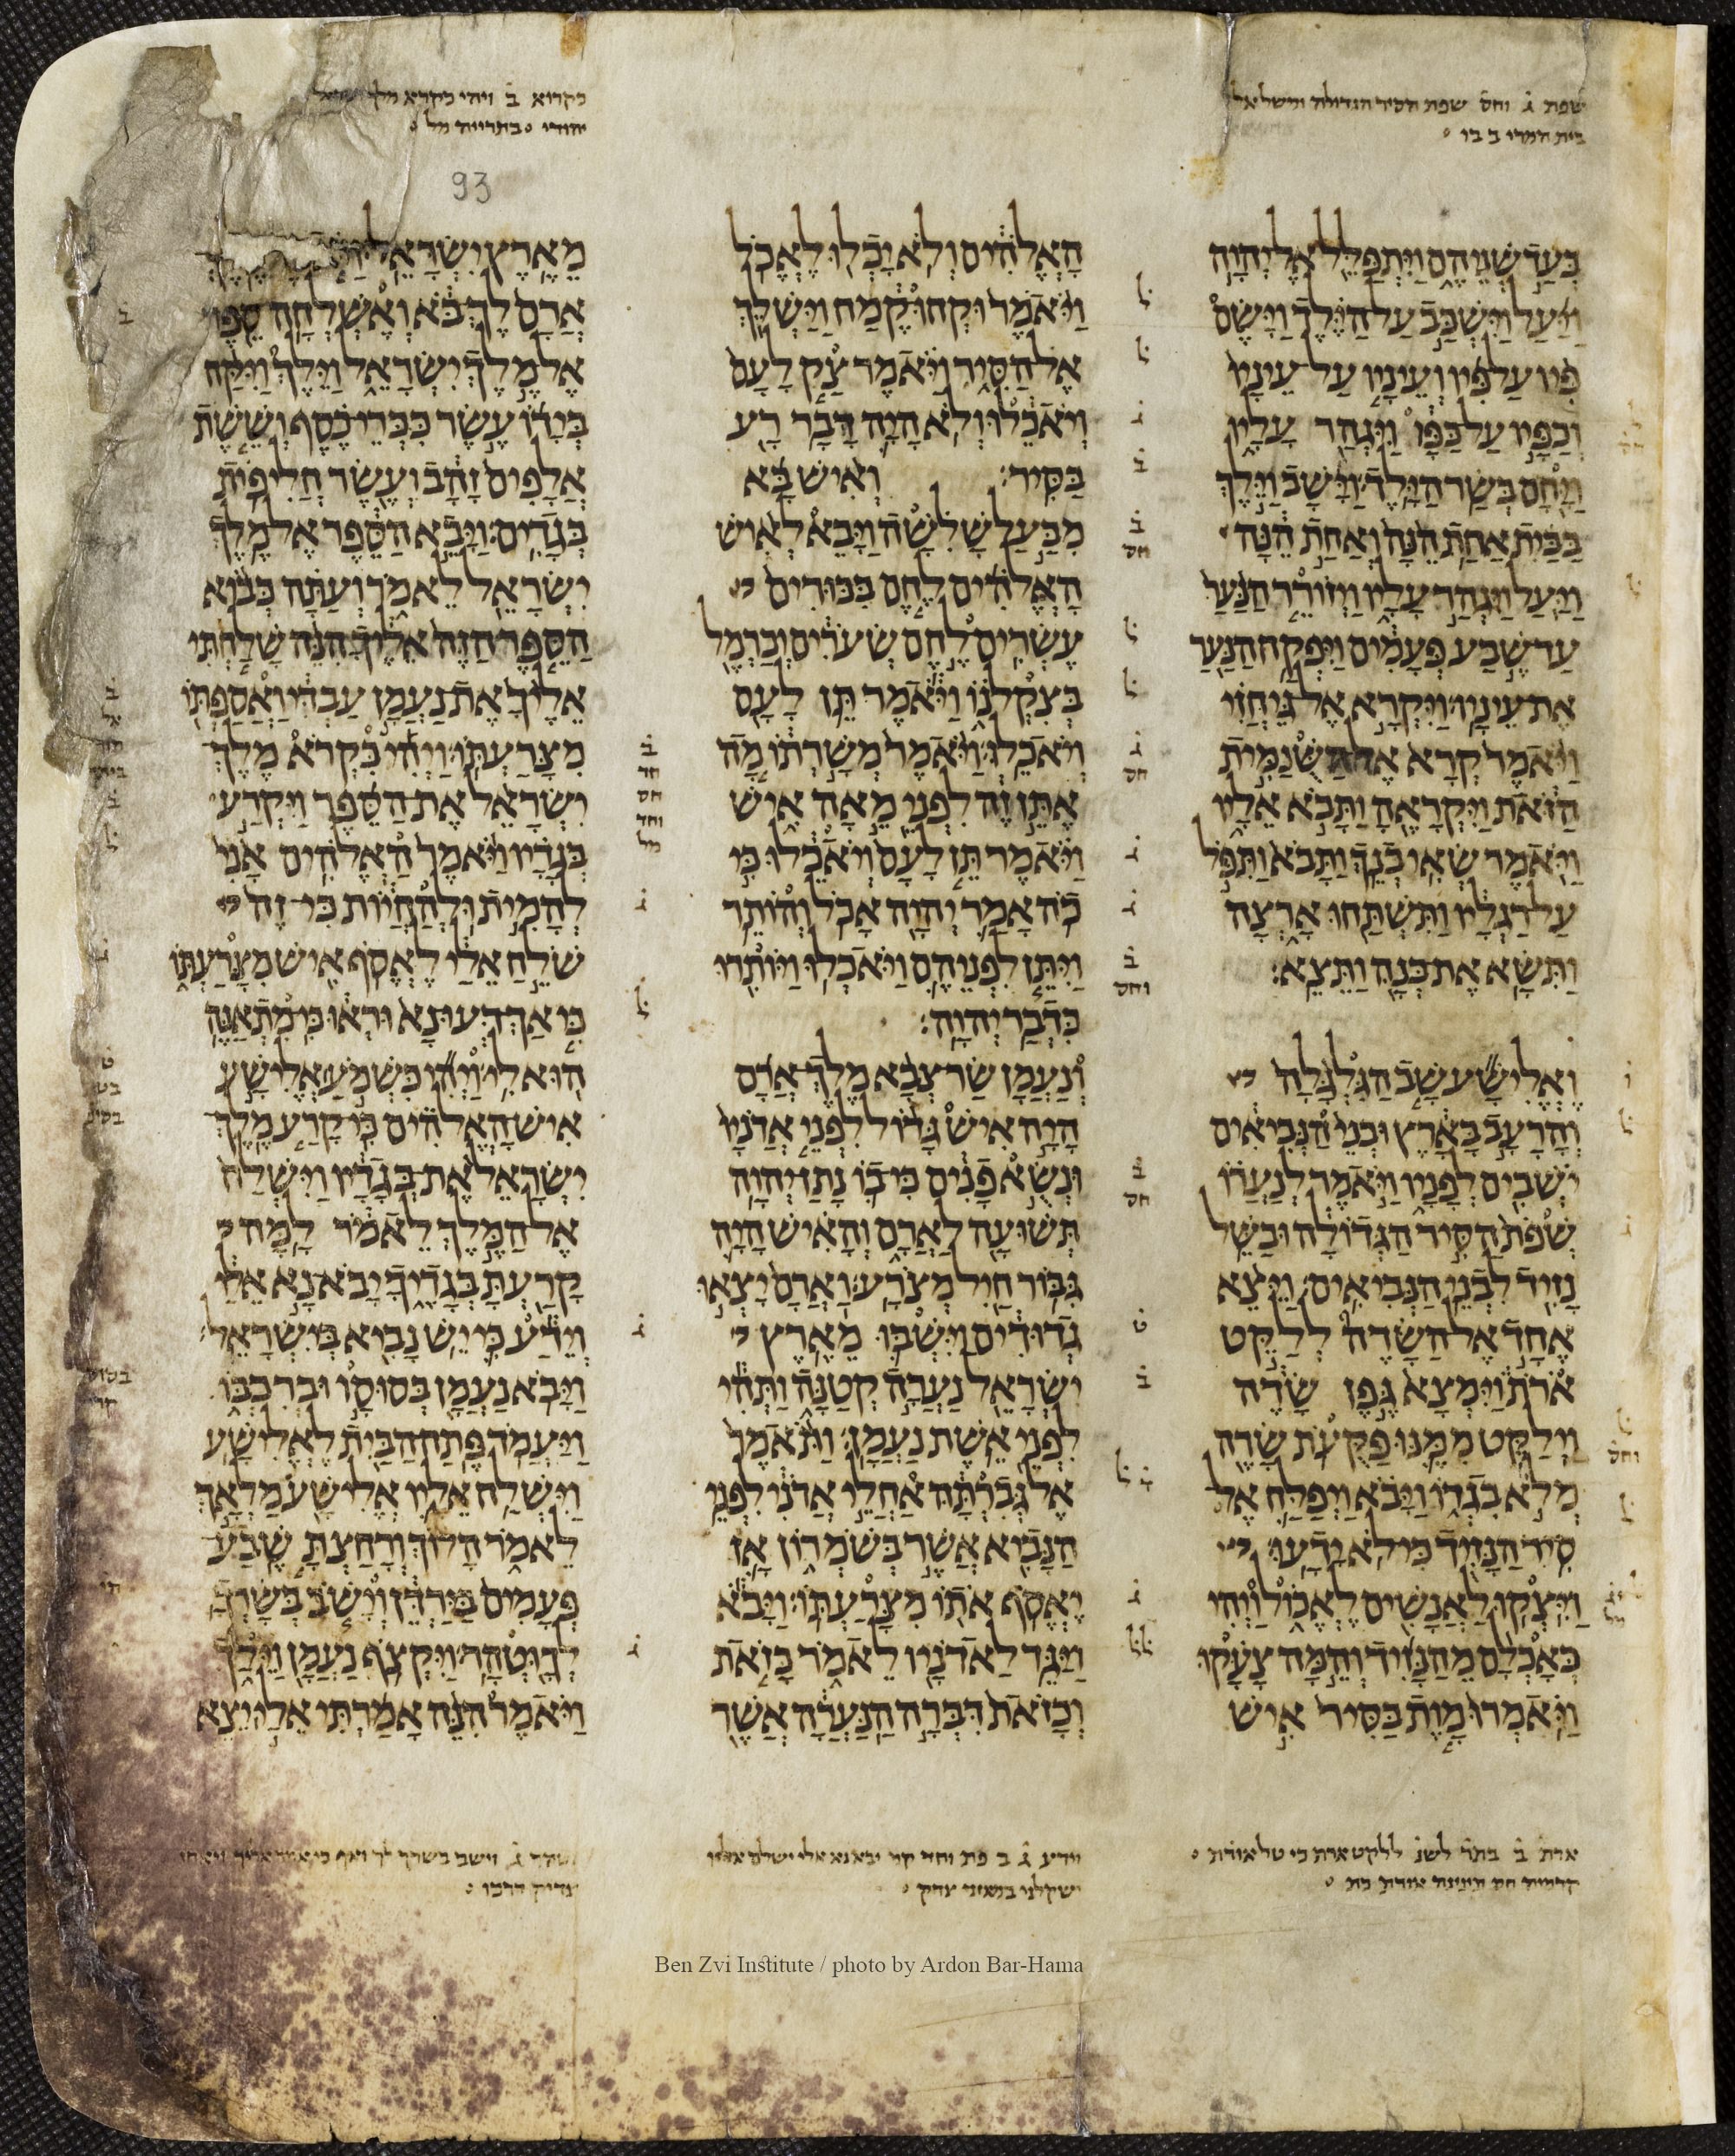 שפת ג וחס שפת הסיר הגדולה ובשל אל
בית המרי ב בו
כקרוא ב ויהי כקרא מלך
יהודי בתרייה מל
93
בעד שניהם ויתפלל אל יהוה
ויעל וישכב על הילד וישם
פיו על פיו ועיניו על עיניו
וכפיו על כפו ויגהר עליו
ויחם בשר הילד וישב וילך
בבית אחת הנה ואחת הנה
ויעל ויגהר עליו ויזורר הנער
עד שבע פעמים ויפקח הנער
את עיניו ויקרא אל גיחזי
ויאמר קרא אל השנמית
הזאת ויקראה ותבא אליו
ויאמר שאי בנך ותבא ותפל
על רגליו ותשתחו ארצה
ותשא את בנה ותצא
ואלישע שב הגלגלה
והרעב בארץ ובני הנביאים
ישבים לפניו ויאמר לנערו
שפת הסיר הגדולה ובשל
נזיד לבני הנביאים ויצא
אחד אל השדה ללקט
ארת וימצא גפן שדה
וילקט ממנו פקעת שדה
מלא בגדו ויבא ויפלח אל
סיר הנזיד כי לא ידעו
ויצקו לאנשים לאכול ויהי
כאכלם מהנזיד והמה צעקו
ויאמרו מות בסיר איש
האלהים ולא יכלו לאכל
ויאמר וקחו קמח וישלך
אל הסיר ויאמר צק לעם
ויאכלו ולא היה דבר רע
בסיר ואיש בא
מבעל שלשה ויבא לאיש
האלהים לחם בכורים
עשרים לחם שערים וכרמל
בצקלנו ויאמר תן לעם
ויאכלו ויאמר משרתו מה
אתן זה לפני מאה איש
ויאמר תן לעם ויאכלו כי
כה אמר יהוה אכל והותר
ויתן לפניהם ויאכלו ויותרו
כדבר יהוה
ונעמן שר צבא מלך ארם
היה איש גדול לפני אדניו
ונשא פנים כי בו נתן יהוה
תשועה לארם והאיש היה
גבור חיל מצרע וארם יצאו
גדודים וישבו מארץ
ישראל נערה קטנה ותהי
לפני אשת נעמן ותאמר
אל גברתה אחלי אדני לפני
הנביא אשר בשמרון אז
יאסף אתו מצרעתו ויבא
ויגד לאדניו לאמר כזאת
וכזאת דברה הנערה אשר
מארץ ישראל
ארם לך בא ואשלחה ספר
אל מלך ישראל וילך ויקח
בידו עשר ככרי כסף וששת
אלפים זהב ועשר חליפות
בגדים ויבא הספר אל מלך
ישראל לאמר ועתה כבוא
הספר הזה אליך הנה שלחתי
אליך את נעמן עבדי ואספתו
מצרעתו ויהי כקרא מלך
ישראל את הספר ויקרע
בגדיו ויאמר האלהים אני
להמית ולהחיות כי זה
שלח אלי לאסף איש מצרעתו
כי אך דעו נא וראו כי מתאנה
הוא לי ויהי כשמע אלישע
איש האלהים כי קרע מלך
ישראל את בגדיו וישלח
אל המלך לאמר למה
קרעת בגדיך יבא נא אלי
וידע כי יש נביא בישראל
ויבא נעמן בסוסו וברכבו
ויעמד פתח הבית לאלישע
וישלח אליו אלישע מלאך
לאמר הלוך ורחצת שבע
פעמים בירדן וישב בשרך
לך וטהר ויקצף נעמן וילך
ויאמר הנה אמרתי אלי יצא
ארת ב בתר לשנ ללקט ארת כי טל אורת
קדמיה חס תינינה אורת כת
וידע ג ב פת וחד קמ יבא נא אלי ישלם אליו
ישקלני במאזני צדק
וטהר ג וישב בשרך לך ואף כי אמר אליך
Ben Zvi Institute / photo by Ardon Bar-Hama